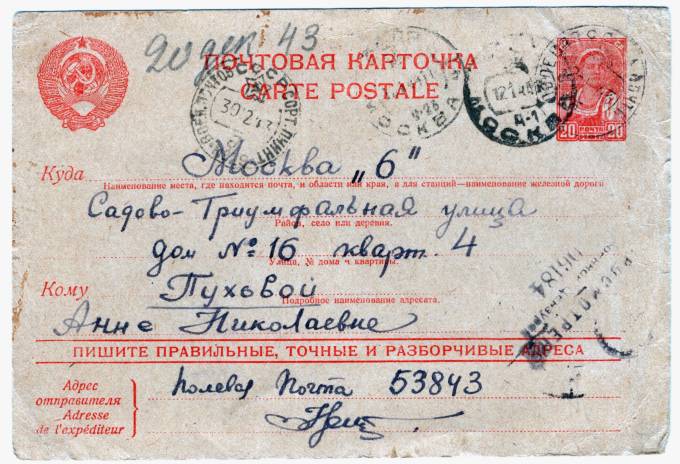 20 дек 43
ПОЧТОВАЯ КАРТОЧКА
CARTE POSTALE
МОСКВА
МОСКВА
20 ПОЧТА 20
Куда Москва „6"
Наименование места, где находится почта, и области или края, а для станций—наименование железной дороги
Садово-Триумфальная улица
Район, село или деревня.
дом № 16 кварт. 4
Улица, № дома и квартиры.
Кому Пуховой
Подробное наименование адресата.
Анне Николаевне
ПИШИТЕ ПРАВИЛЬНЫЕ, ТОЧНЫЕ И РАЗБОРЧИВЫЕ АДРЕСА
Адрес отправителя
Adresse de l'expéditeur
Полевая Почта 53843
ПРОСМОТРЕНО
06184